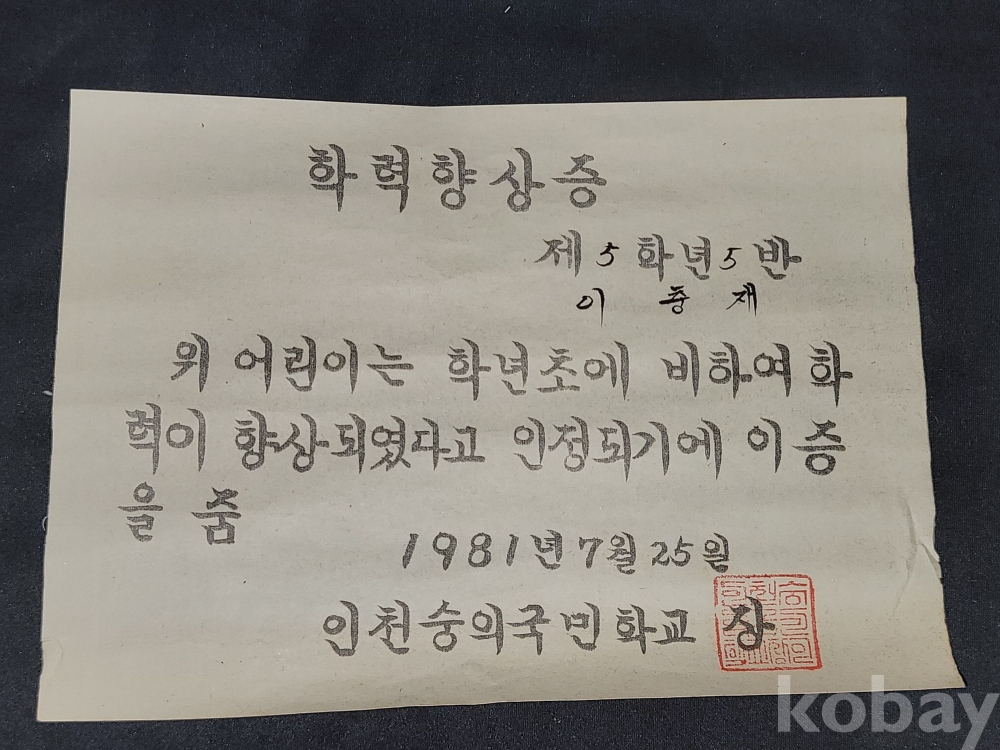 학력향상증
제 5 학년 5 반
이 충 재
위 어린이는 학년초에 비하여 학
력이 향상되였다고 인정되기에 이 증
을 줌
1981년 7월 25일
인천숭의국민학교 장
kobay